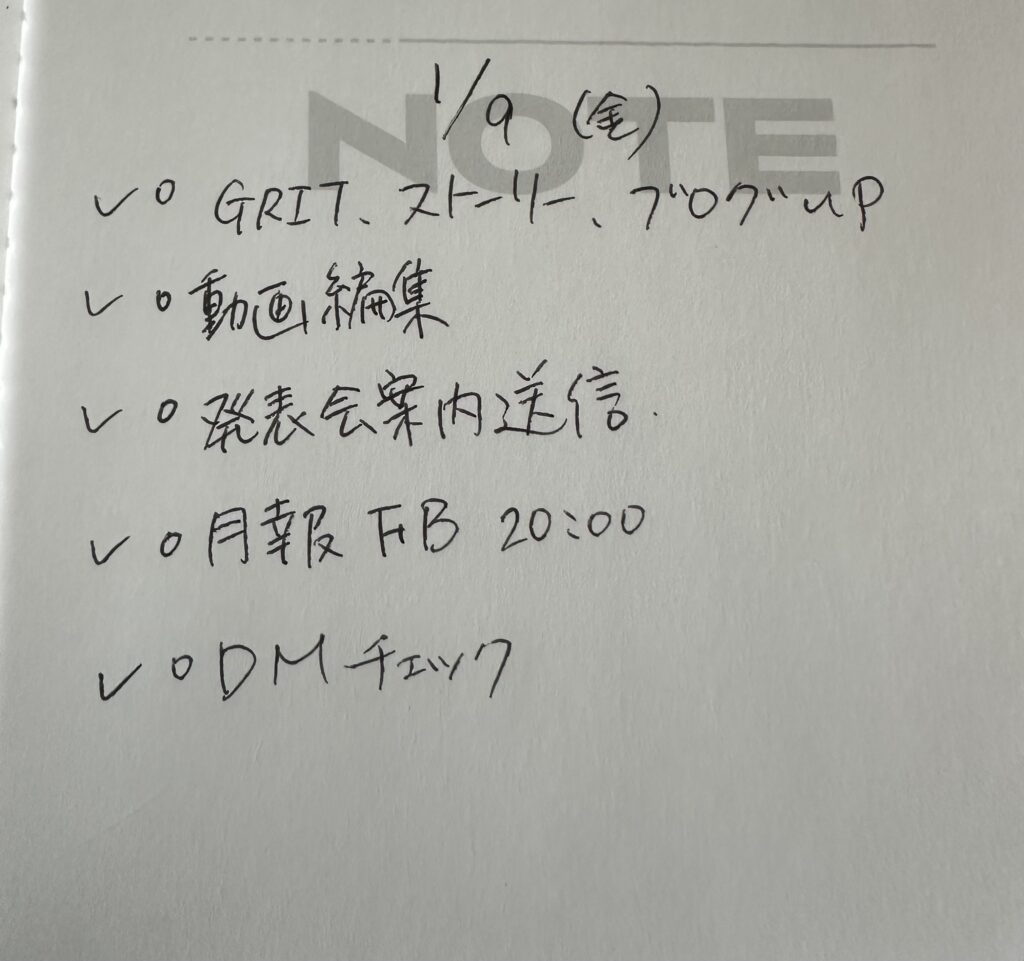 NOTE
1/9 (金)
✓○ GRIT、ストーリー、ブログup
✓○ 動画編集
✓○ 発表会案内送信.
✓○ 月報 FB 20:00
✓○ DMチェック